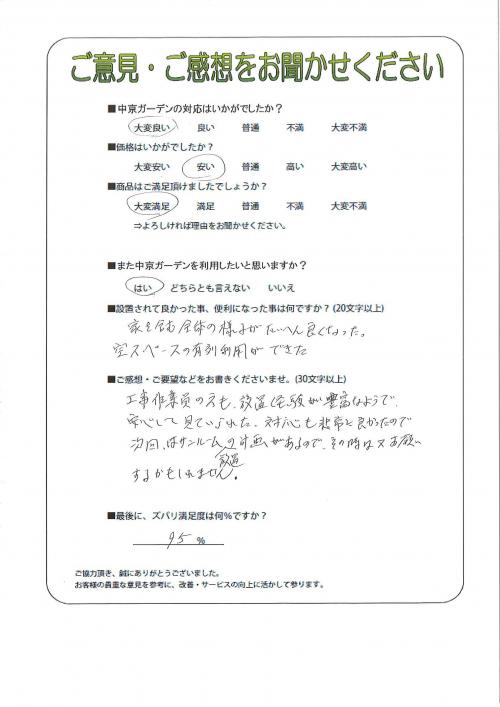 ご意見・ご感想をお聞かせください
■中京ガーデンの対応はいかがでしたか？
大変良い 良い 普通 不満 大変不満
■価格はいかがでしたか？
大変安い 安い 普通 高い 大変高い
■商品はご満足頂けましたでしょうか？
大変満足 満足 普通 不満 大変不満
⇒よろしければ理由をお聞かせください。
■また中京ガーデンを利用したいと思いますか？
はい どちらとも言えない いいえ
■設置されて良かった事、便利になった事は何ですか？(20文字以上)
家を含む全体の様子がたいへん良くなった。
空スペースの有効利用ができた
■ご感想・ご要望などをお書きくださいませ。(30文字以上)
工事作業員の方も、設置経験が豊富なようで、
安心して見ていられた。対応も非常に良かったので
次回はサンルーム設置の計画があるので、その時は又お願い
するかもしれません。
■最後に、ズバリ満足度は何％ですか？
95 ％
ご協力頂き、誠にありがとうございました。
お客様の貴重な意見を参考に、改善・サービスの向上に活かして参ります。